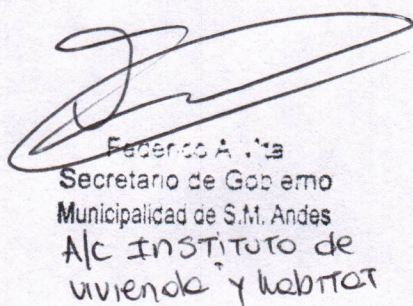 Federico A. Vita
Secretario de Gobierno
Municipalidad de S.M. Andes
A/c INSTITUTO de
vivienda y habitat